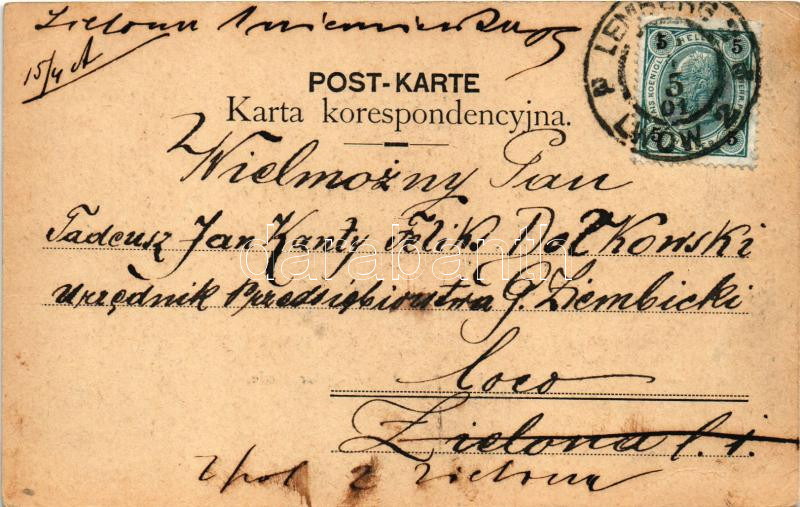 Zielona
15/4
LEMBERG
LWÓW 2
5
01
5 HELLER 5
5 5
POST-KARTE
Karta korespondencyjna.
Wielmożny Pan
Tadeusz Jan Kanty Feliks Dołkowski
Urzędnik Przedsiębiorstwa G. Ziembicki
loco
Zielona l. 1.
2 Zielona
darabanth